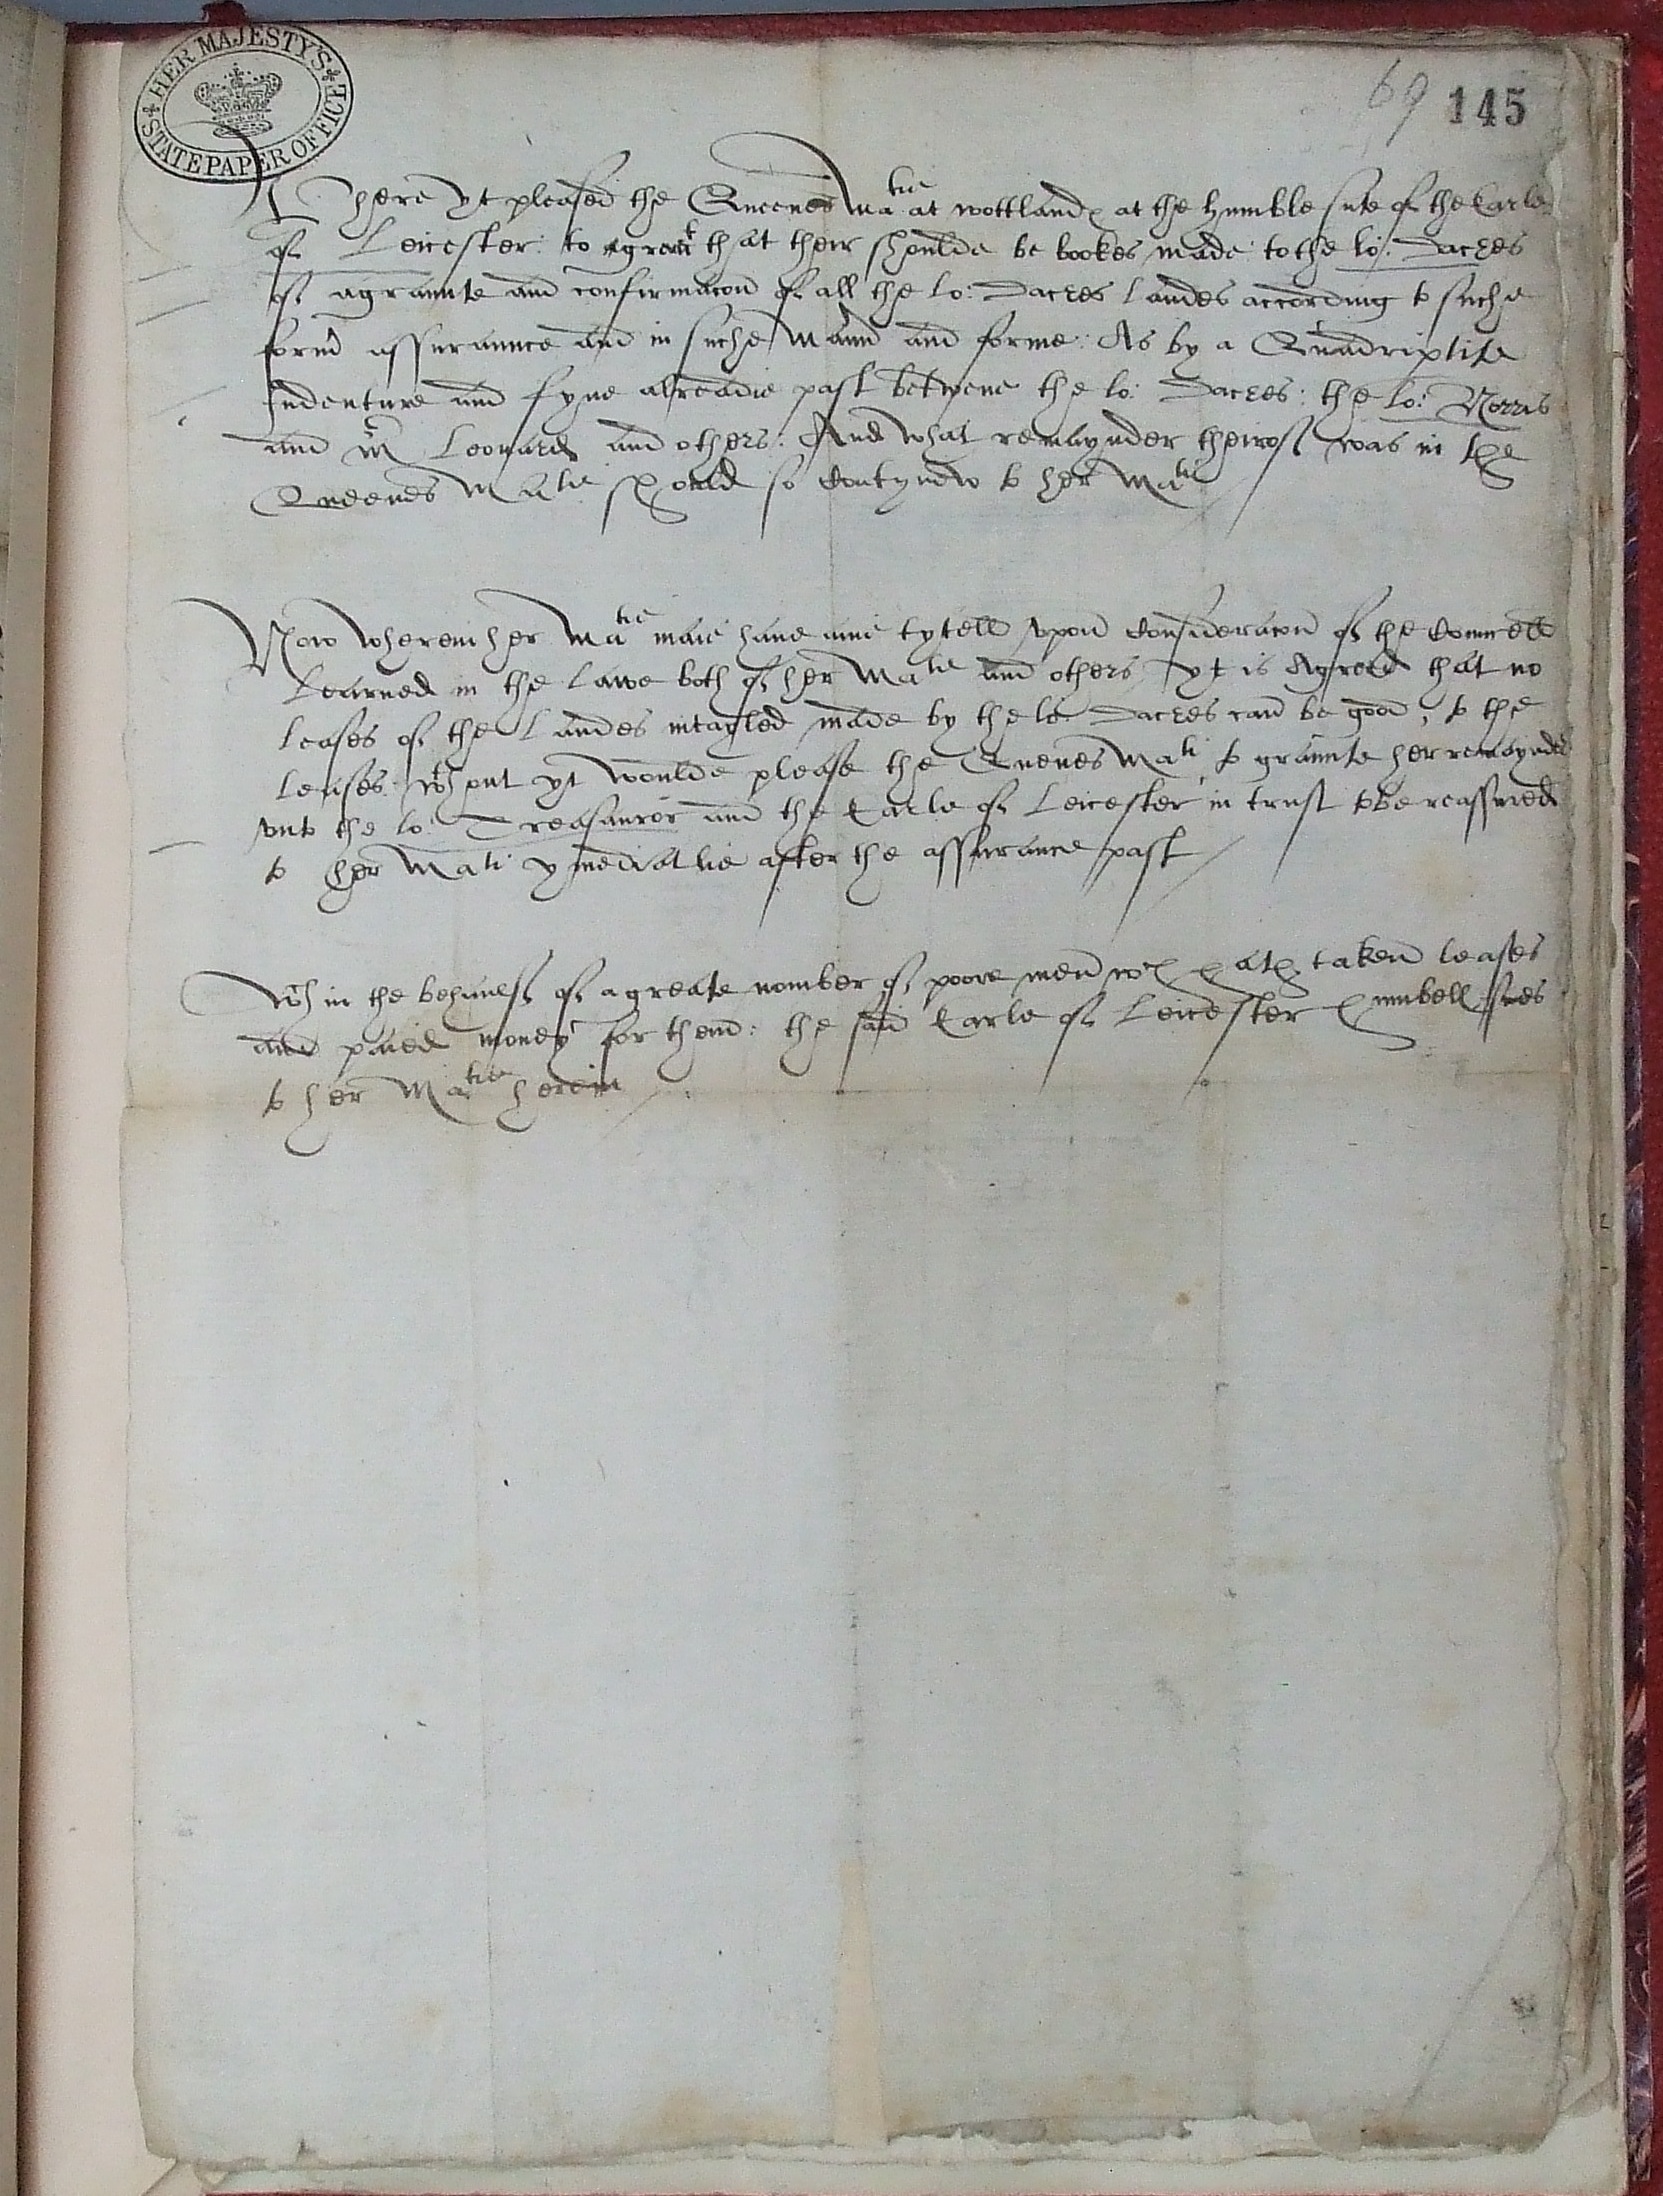 HER MAJESTY'S STATE PAPER OFFICE
69 145
Where yt pleased the Queenes Matie at the humble sute of the Earle
of Leicester: to agree that their shoulde be bookes made to the lo: Dacres
of a graunte and confirmacon of all the lo: Dacres landes according to suche
form assuraunce and in suche mann and forme: As by a Quadriptite
Indenture and fyne alreadie past betwene the lo: Dacres: the lo: Norris
and Mr Leonard and others: And what remaynder theirof was in the
Queenes Matie should so contynew to her Matie
Now wherein her Matie maie have anie tytell vpon consideracon of the councell
learned in the lawe both of her Matie and others yt is Agreed that no
leases of the landes intayled made by the lo: Dacres can be good, to the
leases: wthout yt woulde please the Quenes Mati to graunte her remaynder
vnto the lo: Treasauror and the Earle of Leicester in trust to be reassured
to her Mati ymediatlie after the assurance past
Wch in the behaulf of a greate nomber of poore men wch hath taken leases
and paied money for them: the said Earle of Leicester humbell sues
to her Matie herein